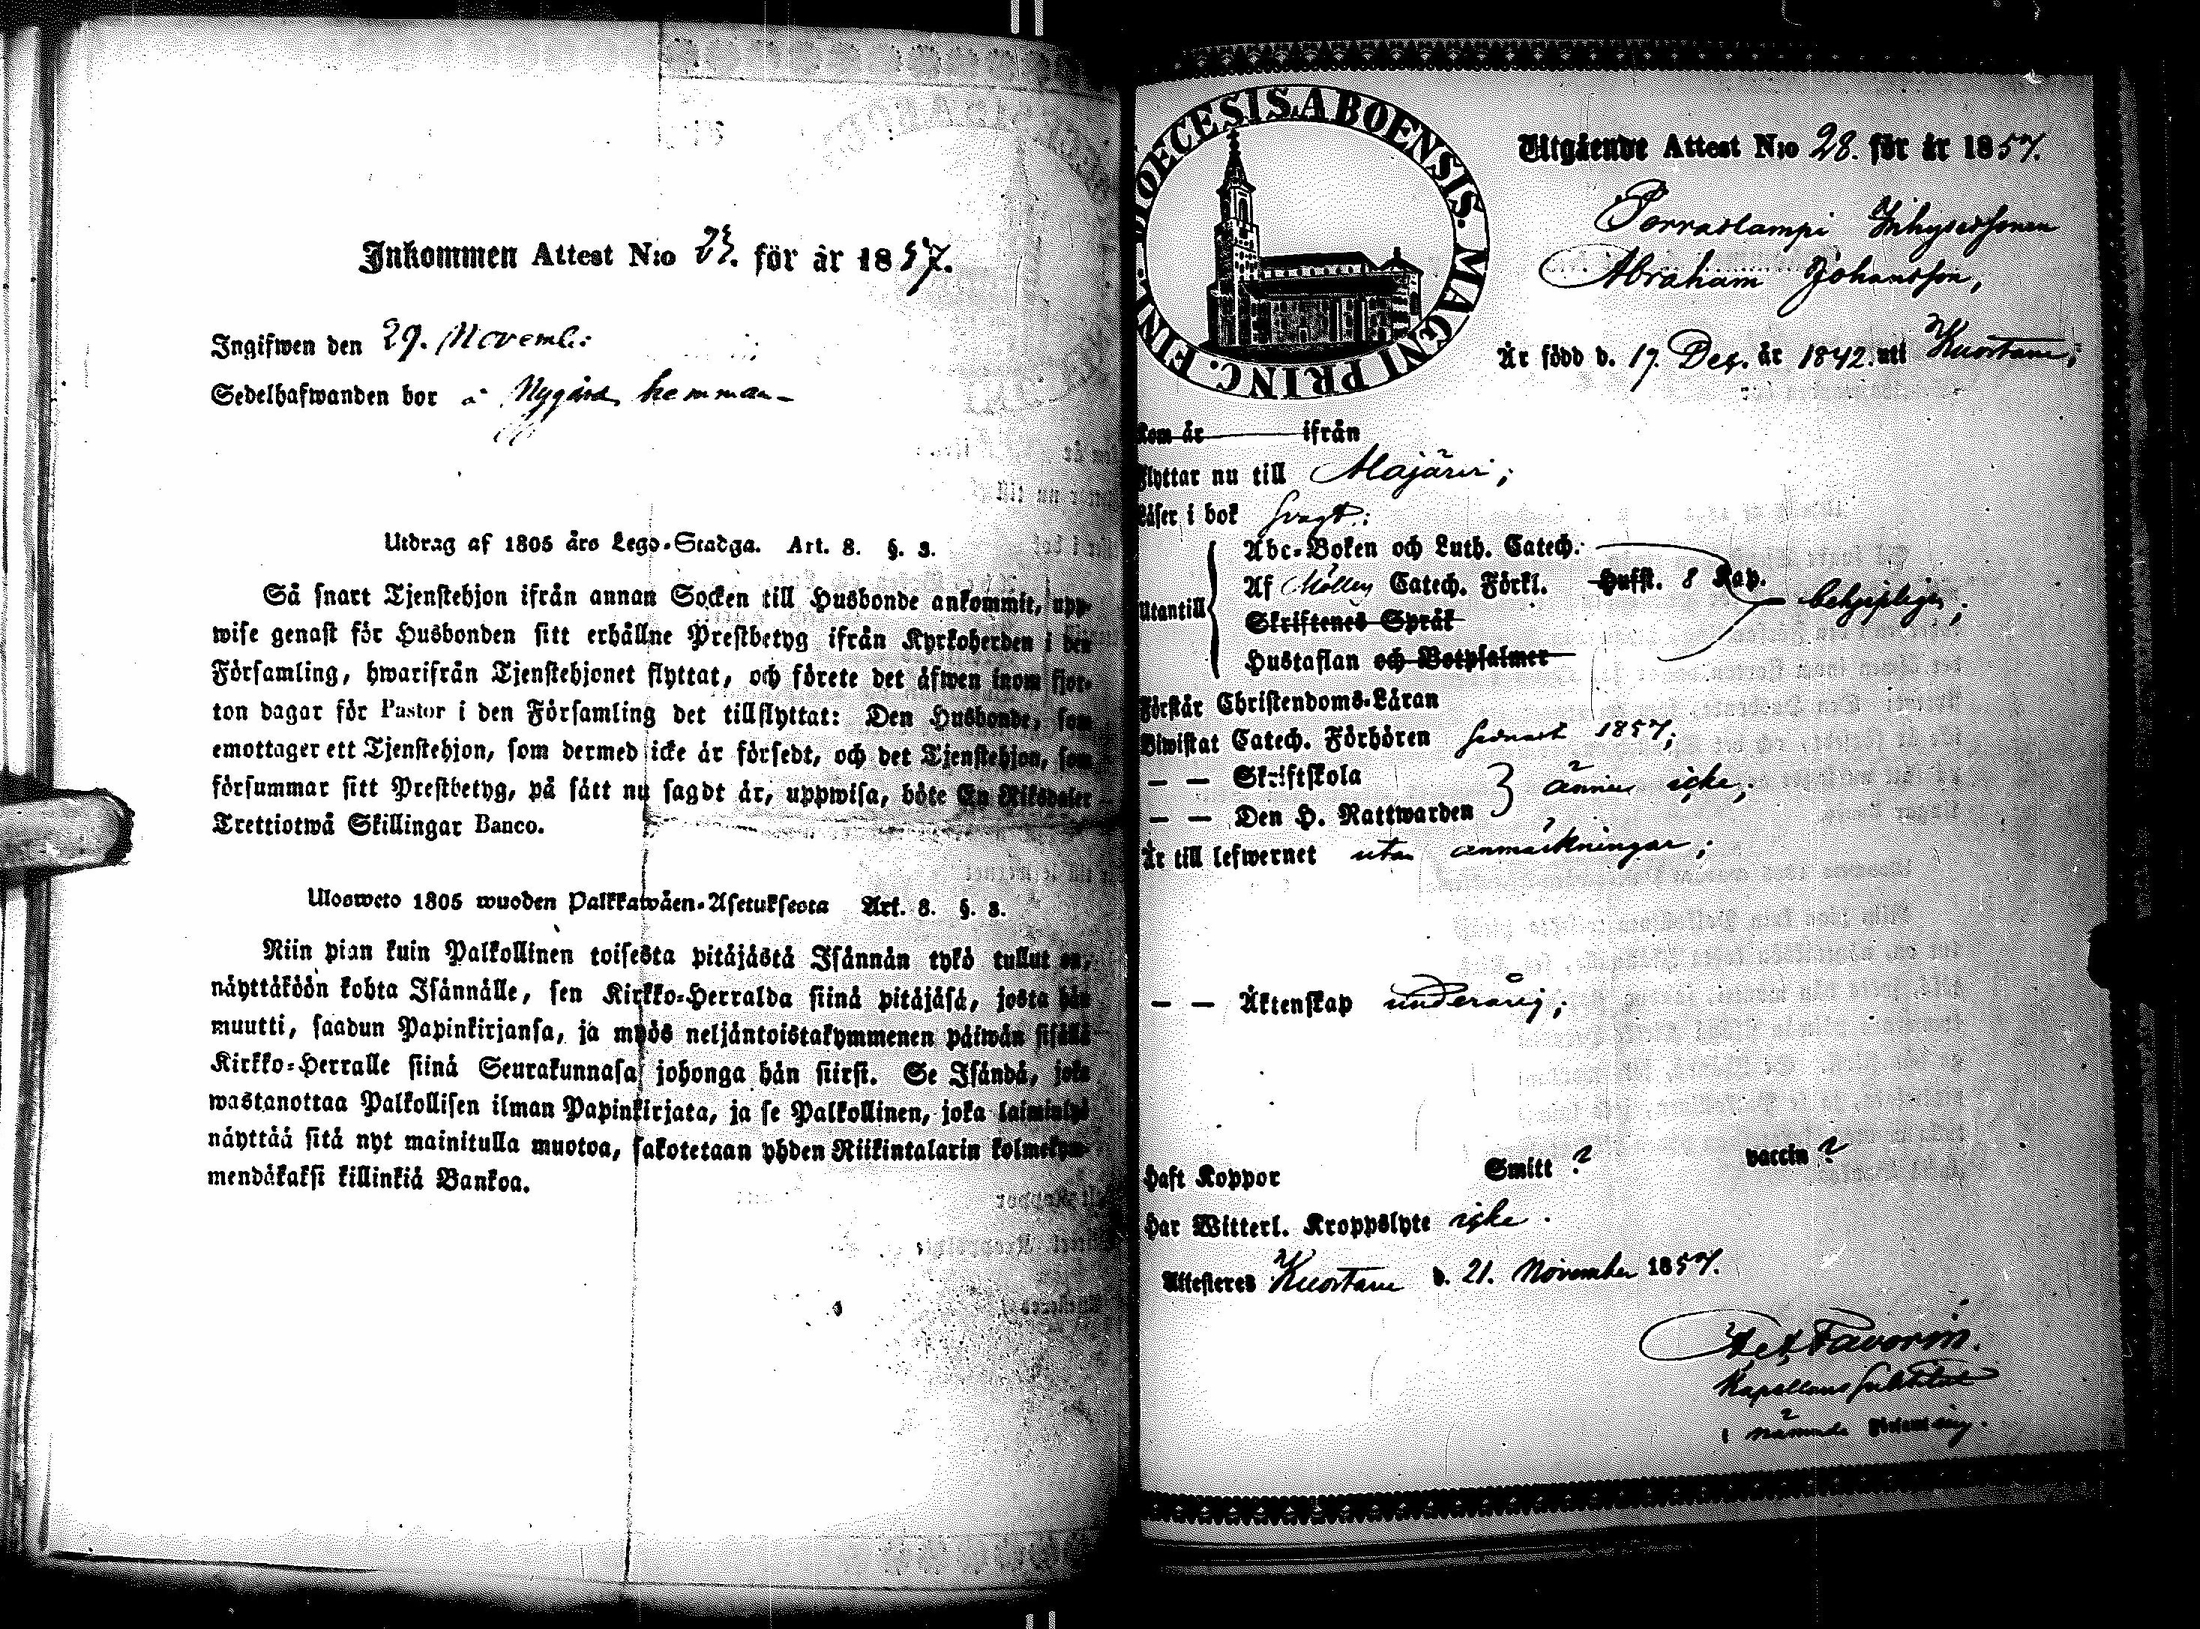 Inkommen Attest N:o 23. för år 1857.
Ingifwen den 29. Novemb:
Sedelhafwanden bor å Nygård hemman
Utdrag af 1805 års Lego-Stadga. Art. 8. §. 3.
Så snart Tjenstehjon ifrån annan Socken till Husbonde ankommit, upp-
wise genast för Husbonden sitt erhållne Prestbetyg ifrån Kyrkoherden i den
Församling, hwarifrån Tjenstehjonet flyttat, och förete det äfwen inom fjor-
ton dagar för Pastor i den Församling det tillflyttat: Den Husbonde, som
emottager ett Tjenstehjon, som dermed icke är försedt, och det Tjenstehjon, som
försummar sitt Prestbetyg, på sätt nu sagdt är, uppwisa, böte En Riksdaler
Trettiotwå Skillingar Banco.
Ulosweto 1805 wuoden Palkkawäen-Asetuksesta Art. 8. §. 3.
Niin pian kuin Palkollinen toisesta pitäjästä Isännän tykö tullut on,
näyttäköön kohta Isännälle, sen Kirkko-Herralda siinä pitäjäsä, josta hän
muutti, saadun Papinkirjansa, ja myös neljäntoistakymmenen päiwän sisällä
Kirkko-Herralle siinä Seurakunnasa johonga hän siirsi. Se Isändä, joka
wastanottaa Palkollisen ilman Papinkirjata, ja se Palkollinen, joka laiminlyö
näyttää sitä nyt mainitulla muotoa, sakotetaan yhden Riikintalarin kolmekym-
mendäkaksi killinkiä Bankoa.
DIOECESIS ABOENSIS. MAGNI PRINC. FINL.
Utgående Attest N:o 28. för år 1857.
Porraslampi Inhysessonen
Abraham Johansson,
Är född d. 17. Dec. år 1842. uti Kuortane;
Kom år ifrån
Flyttar nu till Alajärvi;
Läser i bok svagt;
Utantill
Abc-Boken och Luth. Catech.
Af Catech. Förkl. Hufst. 8 Kap.
Skriftenes Språk
Hustaflan och Botpsalmer
Förstår Christendoms-Läran
Biwistat Catech. Förhören senast 1857;
— — Skriftskola
ännu icke;
— — Den H. Nattwarden
Är till lefwernet utan anmärkningar;
— — Äktenskap underårig;
Haft Koppor Smitt ? vaccin ?
Har Witterl. Kroppslyte icke.
Attesteres Kuortane d. 21. November 1857.
Favorin.
Kapellans Substitut
i nämnde Församling.